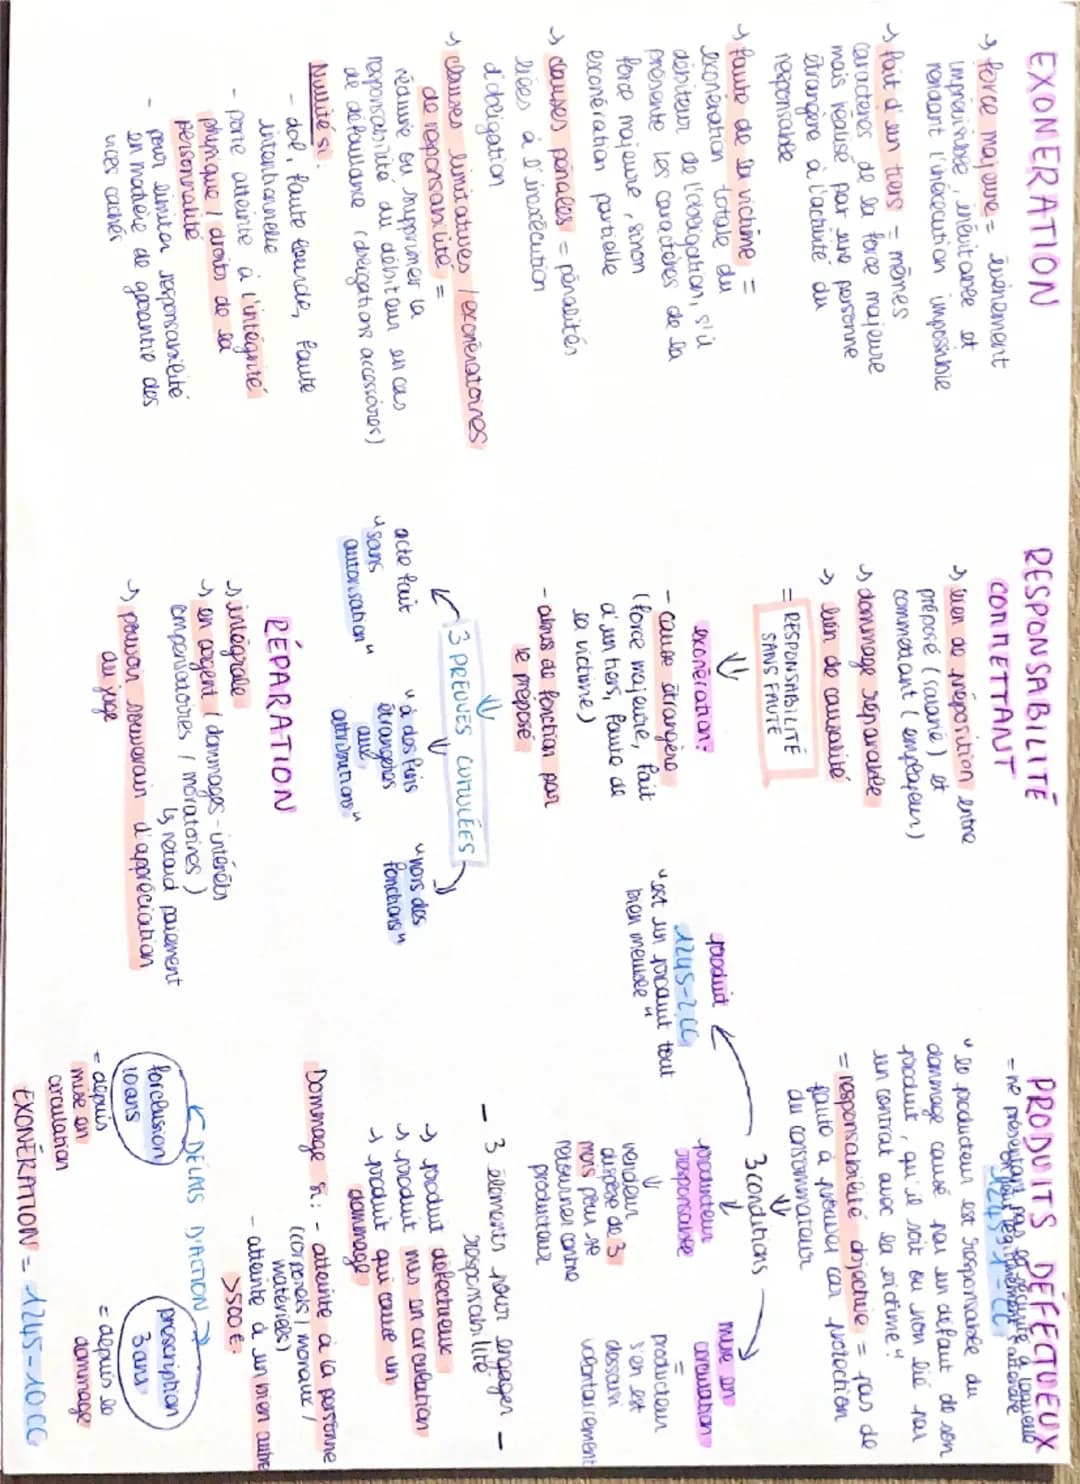 EXONERATION
↳ force majeure = évènement
imprévisible, inévitable et
rendant l'inexécution impossible
↳ fait d'un tiers = mêmes
caractères de la force majeure
mais réalisé par une personne
étrangère à l'activité du
responsable
↳ faute de la victime =
exonération totale du
débiteur de l'obligation, s'il
présente les caractères de la
force majeure, sinon
exonération partielle
↳ clauses pénales = pénalités
liées à l'inexécution
d'obligation
↳ clauses limitatives / exonératoires
de responsabilité =
réduire ou supprimer la
responsabilité du débiteur en cas
de défaillance (obligations accessoires)
Nullité si :
- dol, faute lourde, faute
intentionnelle
- porte atteinte à l'intégrité
physique / droits de la
personnalité
- pour limiter responsabilité
en matière de garantie des
vices cachés
RESPONSABILITÉ
COMMETTANT
↳ lien de préposition entre
préposé (salarié) et
commettant (employeur)
↳ dommage réparable
↳ lien de causalité
= RESPONSABILITÉ
SANS FAUTE
⇓
exonération:
- cause étrangère
(force majeure, fait
d'un tiers, faute de
la victime)
- abus de fonction par
le préposé
⇓
3 PREUVES CUMULÉES
acte fait
"sans
autorisation"
"à des fins
étrangères
aux
attributions"
"hors des
fonctions"
RÉPARATION
↳ intégrale
↳ en argent (dommages-intérêts
compensatoires / moratoires)
↳ retard paiement
↳ pouvoir souverain d'appréciation
du juge
PRODUITS DÉFECTUEUX
1245-1 CC
"le producteur est responsable du
dommage causé par un défaut de son
produit, qu'il soit ou non lié par
un contrat avec la victime."
= responsabilité objective = pas de
faute à prouver car protection
du consommateur
⇓
3 conditions
produit
1245-2 CC
"est un produit tout
bien meuble"
producteur
responsable
⇓
vendeur
dispose de 3
mois pour se
retourner contre
producteur
mise en
circulation
=
producteur
s'en est
dessaisi
volontairement
- 3 éléments pour engager -
responsabilité
↳ produit défectueux
↳ produit mis en circulation
↳ produit qui cause un
dommage
Dommage si : - atteinte à la personne
(corporels / moraux /
matériels)
- atteinte à un bien autre
>500€.
DÉLAIS D'ACTION
forclusion
10 ans
= depuis
mise en
circulation
prescription
3 ans
= depuis le
dommage
EXONÉRATION = 1245-10 CC